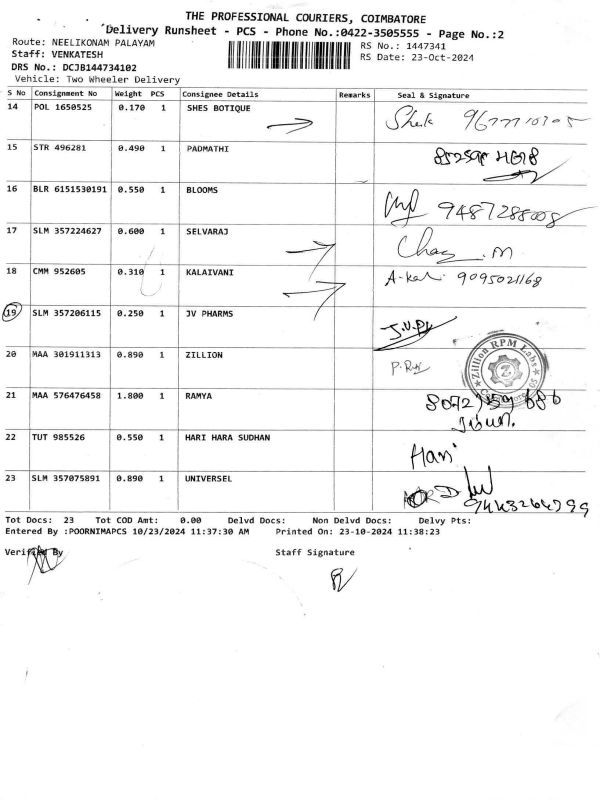 THE PROFESSIONAL COURIERS, COIMBATORE
Delivery Runsheet - PCS - Phone No.:0422-3505555 - Page No.:2
Route: NEELIKONAM PALAYAM RS No.: 1447341
Staff: VENKATESH RS Date: 23-Oct-2024
DRS No.: DCJB144734102
Vehicle: Two Wheeler Delivery
S No Consignment No Weight PCS Consignee Details Remarks Seal & Signature
14 POL 1650525 0.170 1 SHES BOTIQUE
15 STR 496281 0.490 1 PADMATHI
16 BLR 6151530191 0.550 1 BLOOMS 9487288008
17 SLM 357224627 0.600 1 SELVARAJ
18 CMM 952605 0.310 1 KALAIVANI A-kali 9095021168
19 SLM 357206115 0.250 1 JV PHARMS
20 MAA 301911313 0.890 1 ZILLION Zillion RPM Labs
21 MAA 576476458 1.800 1 RAMYA
22 TUT 985526 0.550 1 HARI HARA SUDHAN Hari
23 SLM 357075891 0.890 1 UNIVERSEL
Tot Docs: 23 Tot COD Amt: 0.00 Delvd Docs: Non Delvd Docs: Delvy Pts:
Entered By :POORNIMAPCS 10/23/2024 11:37:30 AM Printed On: 23-10-2024 11:38:23
Verified By Staff Signature